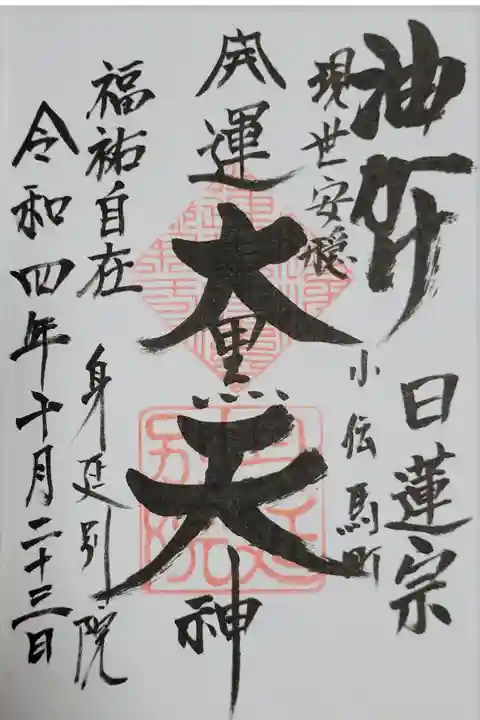 油かけ
日蓮宗
現世安穏
小伝馬町
開運大黒天神
福祐自在
身延別院
令和四年十月二十三日
身延別院